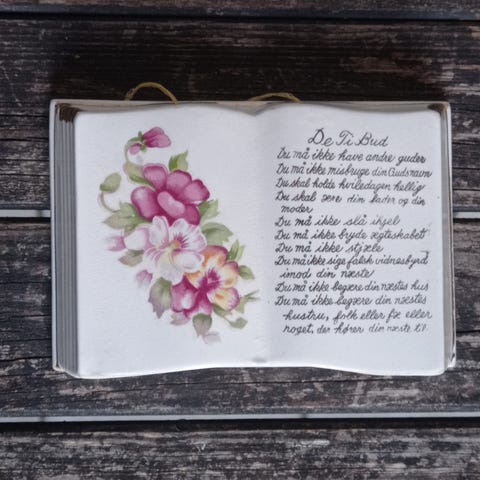 De Ti Bud
Du må ikke have andre guder
Du må ikke misbruge din Guds navn
Du skal holde hviledagen hellig
Du skal ære din fader og din
moder
Du må ikke slå ihjel
Du må ikke bryde ægteskabet
Du må ikke stjæle
Du må ikke sige falsk vidnesbyrd
imod din næste
Du må ikke begære din næstes hus
Du må ikke begære din næstes
hustru, folk eller fæ eller
noget, der hører din næste til.